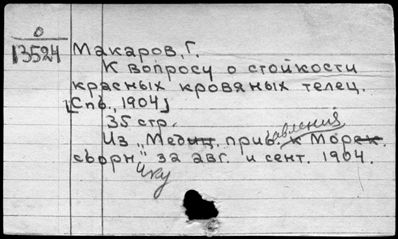 о
13524
Макаров, Г.
К вопросу о стойкости
красных кровяных телец.
[Спб., 1904]
35 стр.
Из „Медиц. прибавления к Морск.
сборнику" за авг. и сент. 1904.